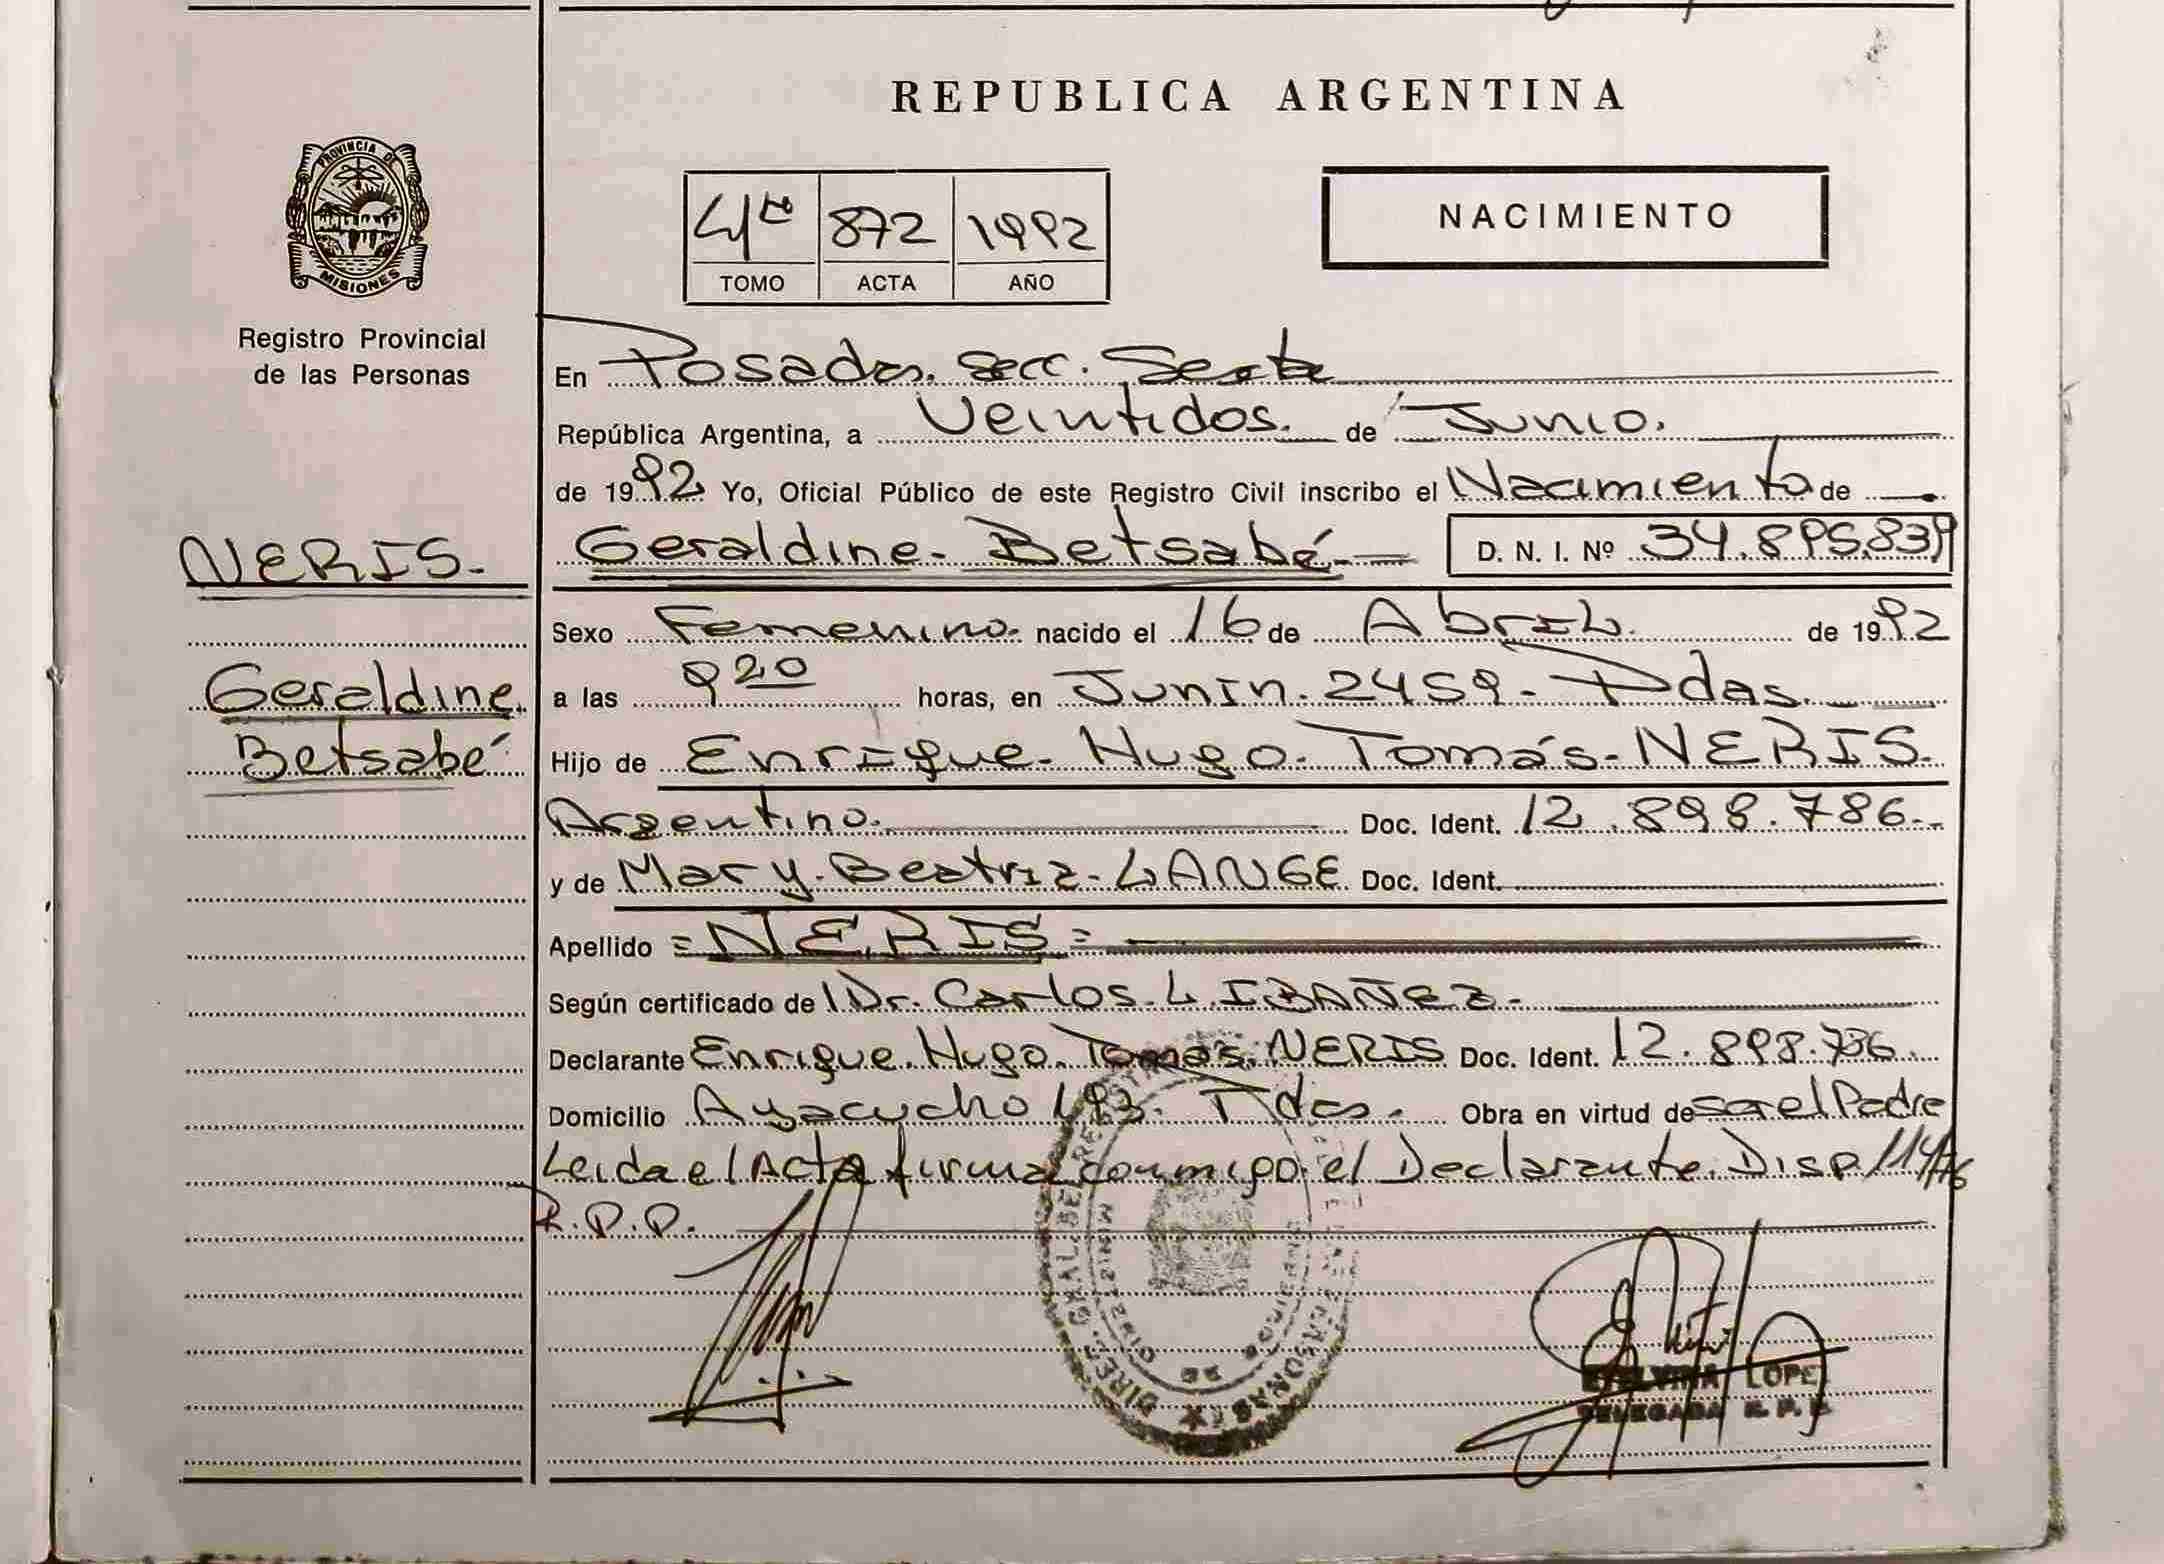 REPUBLICA ARGENTINA
PROVINCIA DE
MISIONES
Registro Provincial
de las Personas
4to 872 1992
TOMO ACTA AÑO
NACIMIENTO
En Posadas. Secc. Sexta
República Argentina, a Veintidos. de Junio.
de 1992 Yo, Oficial Público de este Registro Civil inscribo el Nacimiento de
NERIS.
Geraldine
Betsabé
Geraldine- Betsabé- D. N. I. Nº 34.895.839
Sexo Femenino. nacido el 16 de Abril. de 1992
a las 9 20 horas, en Junin. 2459- Pdas.
Hijo de Enrique. Hugo. Tomás- NERIS.
Argentino. Doc. Ident. 12.898.786.-
y de Mary. Beatriz- LANGE Doc. Ident.
Apellido =NERIS=
Según certificado de Dr. Carlos. L. IBAÑEZ.-
Declarante Enrique. Hugo. Tomás. NERIS Doc. Ident. 12.898.786.
Domicilio Ayacucho 193. Pdas. Obra en virtud de ser el Padre
Leida el Acta firma conmigo el Declarante. Disp. 114/76
R.P.P.
DIREC. GRAL. DE REGISTRO PERSONAS
MINISTERIO DE GOBIERNO
LOPE
DELEGADA R. P. P.